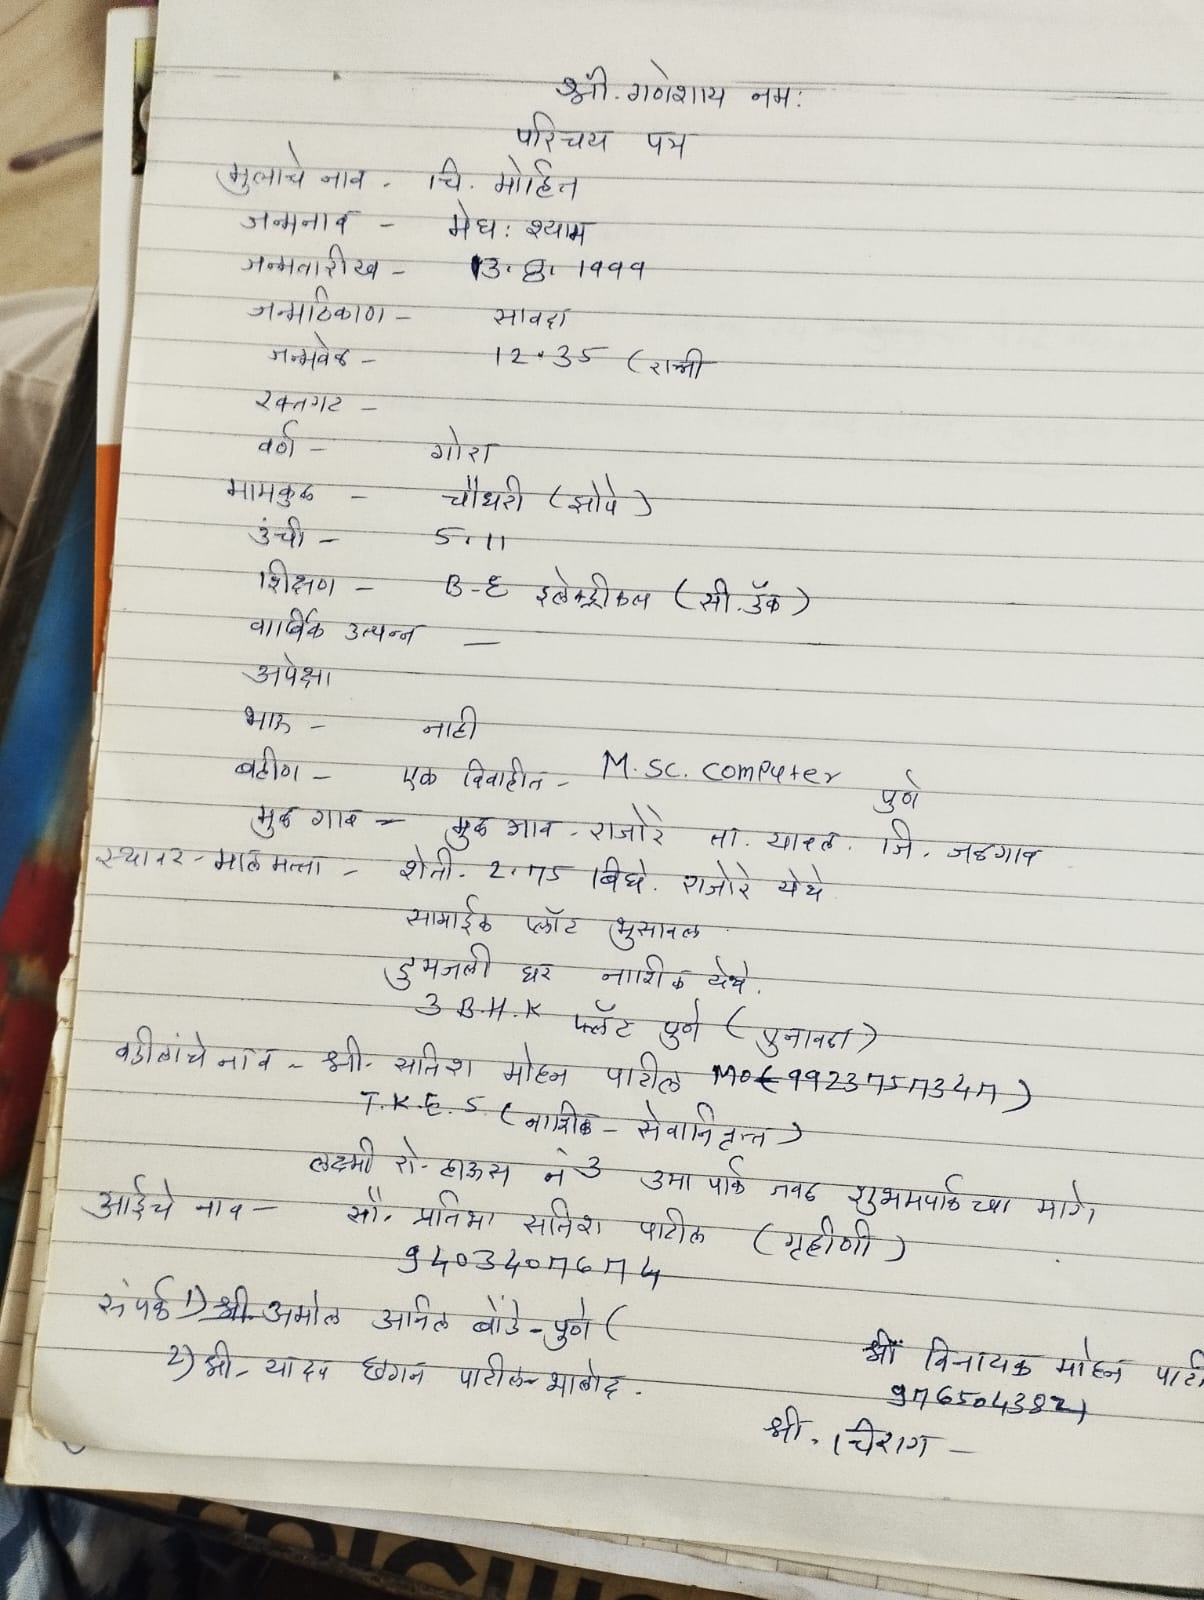 श्री. गणेशाय नमः
परिचय पत्र
मुलाचे नाव - चि. मोहित
जन्मनाव - मेघः श्याम
जन्मतारीख - 13.8.1999
जन्मठिकाण - सावदा
जन्मवेळ - 12.35 (रात्री
रक्तगट -
वर्ण - गोरा
मामकुळ - चौधरी (झोपे)
उंची - 5.11
शिक्षण - B-E इलेक्ट्रीकल (सी. डॅक)
वार्षिक उत्पन्न -
अपेक्षा
भाऊ - नाही
बहीण - एक विवाहीत - M.SC. Computer पुणे
मुळ गाव - मुळ गाव - राजोरे ता. यावल. जि. जळगाव
स्थावर - मालमत्ता - शेती. 2.75 बिघे. राजोरे येथे
सामाईक प्लॉट भुसावल
दुमजली घर नाशिक येथे.
3 B.H.K फ्लॅट पुणे (पुनावळा)
वडीलांचे नाव - श्री. सतिश मोहन पाटील Mo (9923757347)
T.K.E.S. (नाशिक - सेवानिवृत्त)
लक्ष्मी रो-हाऊस नं 3 उमा पार्क जवळ शुभमपार्कच्या मागे
आईचे नाव - सौ. प्रतिभा सतिश पाटील (गृहीणी)
9403407674
संपर्क 1) श्री अमोल अनिल बोंडे - पुणे (
2) श्री - यादव छगन पाटील - भालोद.
श्री विनायक मोहन पाटी
9765043821
श्री. चिराग -